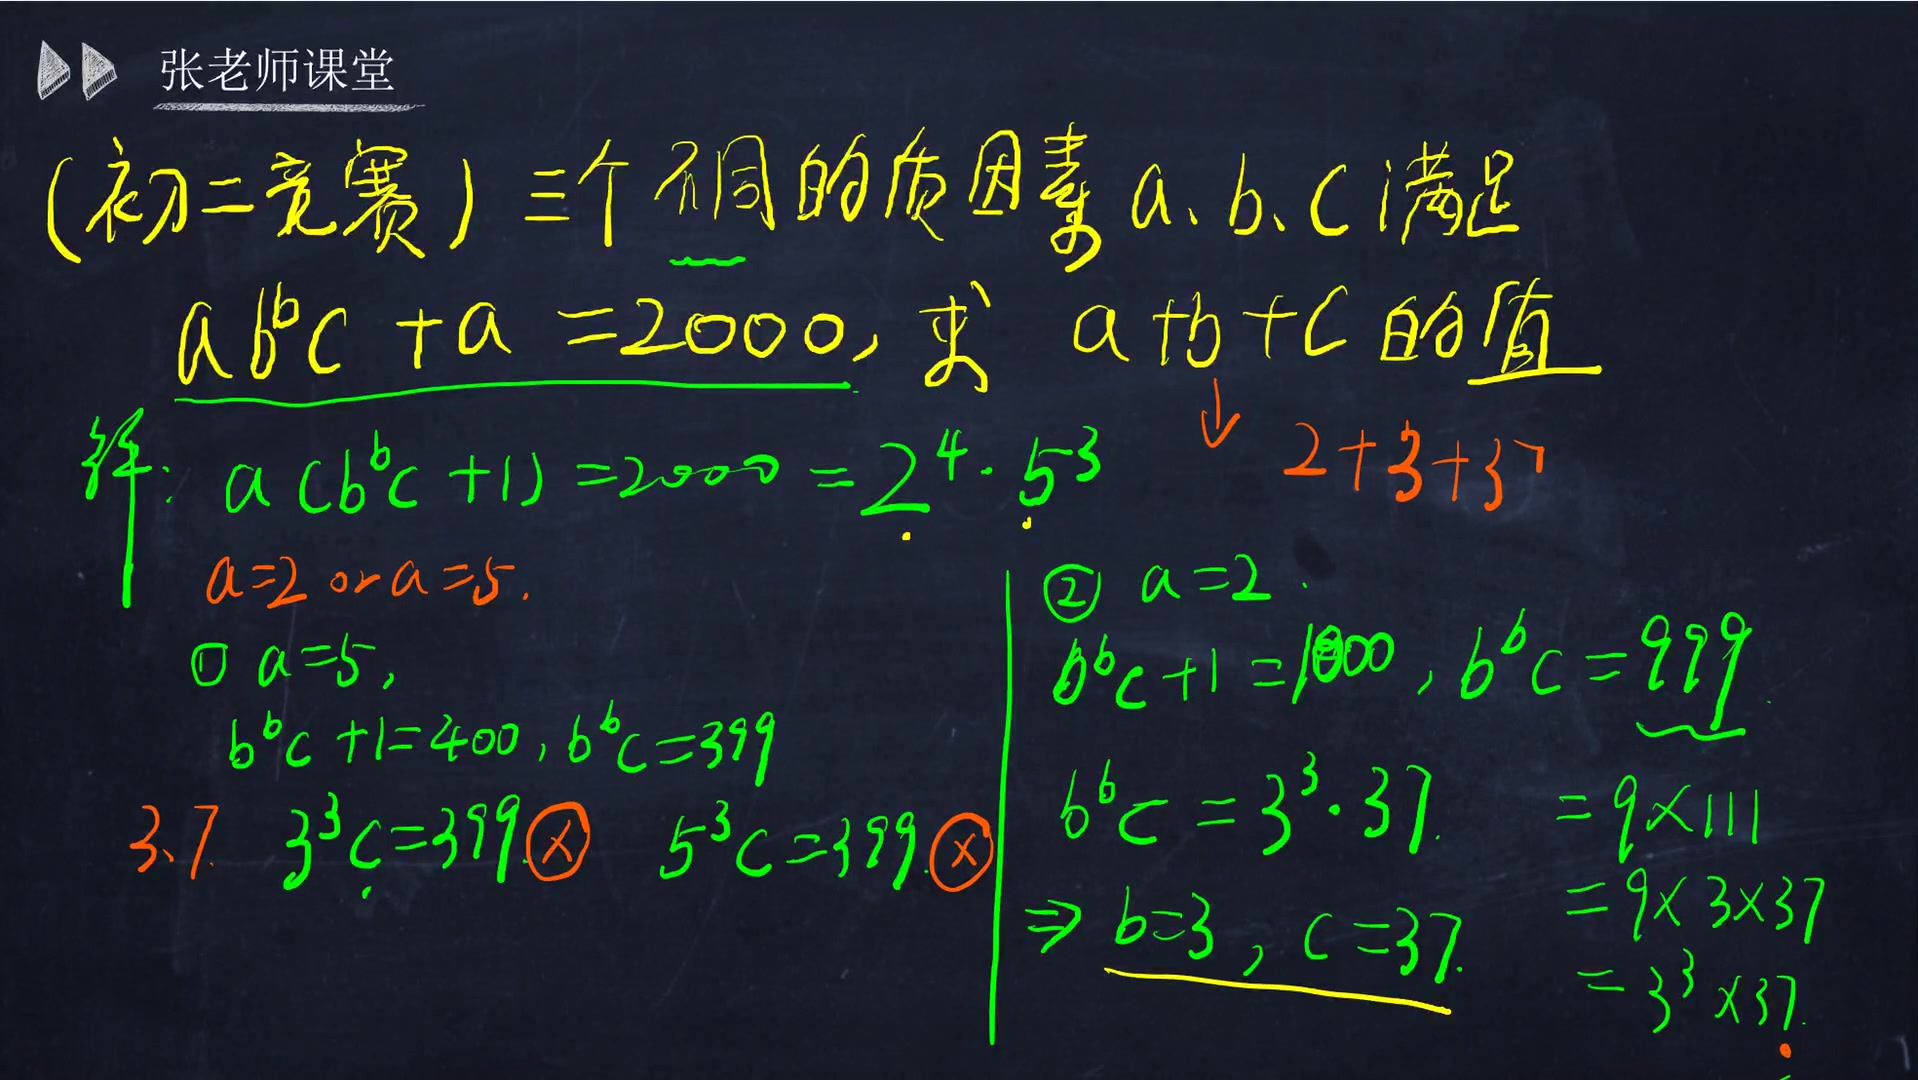 张老师课堂
(初二竞赛) 三个不同的质因素 a、b、c 满足
ab^b c + a = 2000, 求 a+b+c 的值
解: a(b^b c + 1) = 2000 = 2^4 · 5^3
2+3+37
a=2 or a=5.
① a=5,
b^b c + 1 = 400, b^b c = 399
3、7. 3^3 c = 399 ⓧ 5^3 c = 399. ⓧ
② a=2.
b^b c + 1 = 1000, b^b c = 999.
b^b c = 3^3 · 37.
= 9×111
= 9×3×37
= 3^3 × 37.
⇒ b=3, c=37.